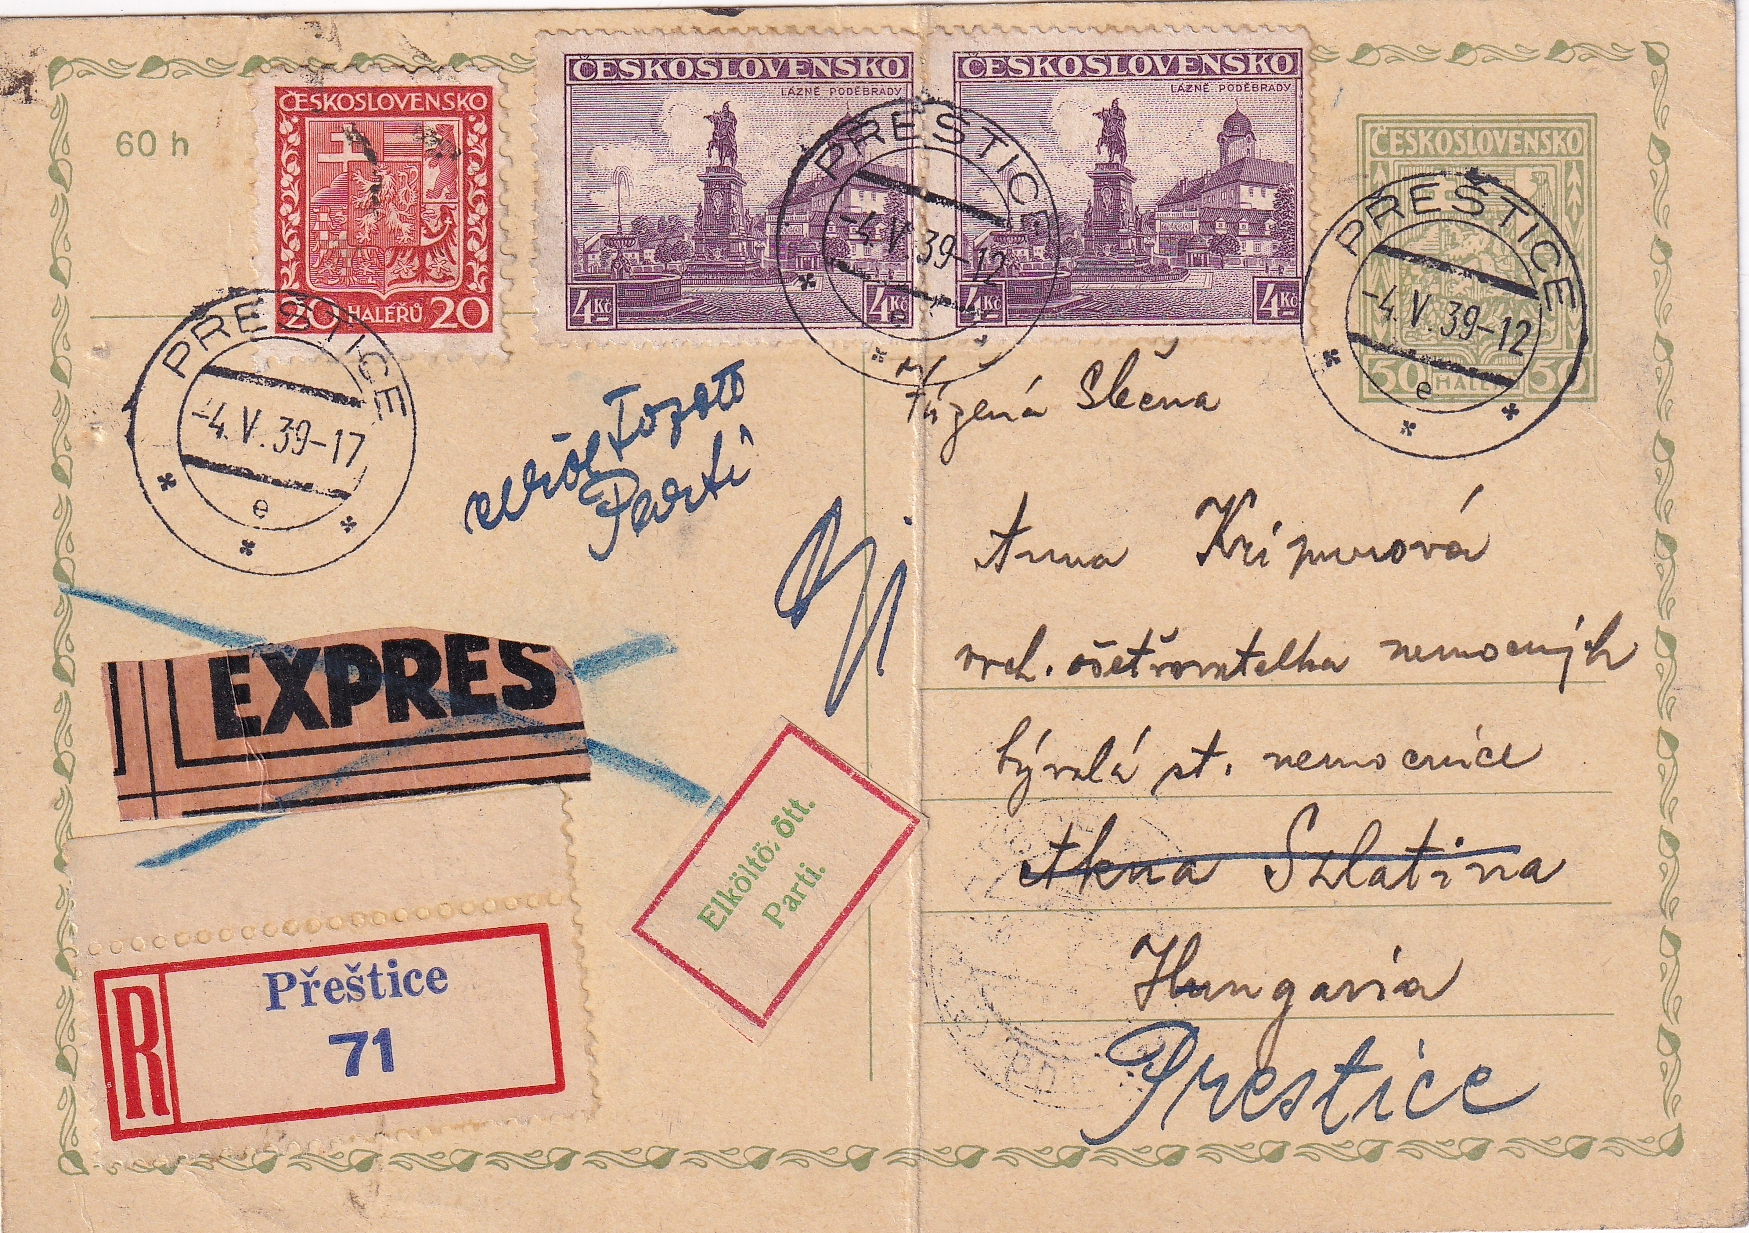 60 h
ČESKOSLOVENSKO
20 HALÉŘŮ 20
ČESKOSLOVENSKO
LÁZNĚ PODĚBRADY
4 Kč 4 Kč
ČESKOSLOVENSKO
LÁZNĚ PODĚBRADY
4 Kč 4 Kč
ČESKOSLOVENSKO
50 HALÉŘŮ 50
PŘEŠTICE
-4.V.39-17
e
PŘEŠTICE
-4.V.39-12
PŘEŠTICE
-4.V.39-12
e
Parti
Slečna
Anna
vrch. ošetřovatelka nemocných
bývalá st. nemocnice
Akna Szlatina
Hungaria
Prestice
EXPRES
Elköltö, ött.
Parti.
R
Přeštice
71